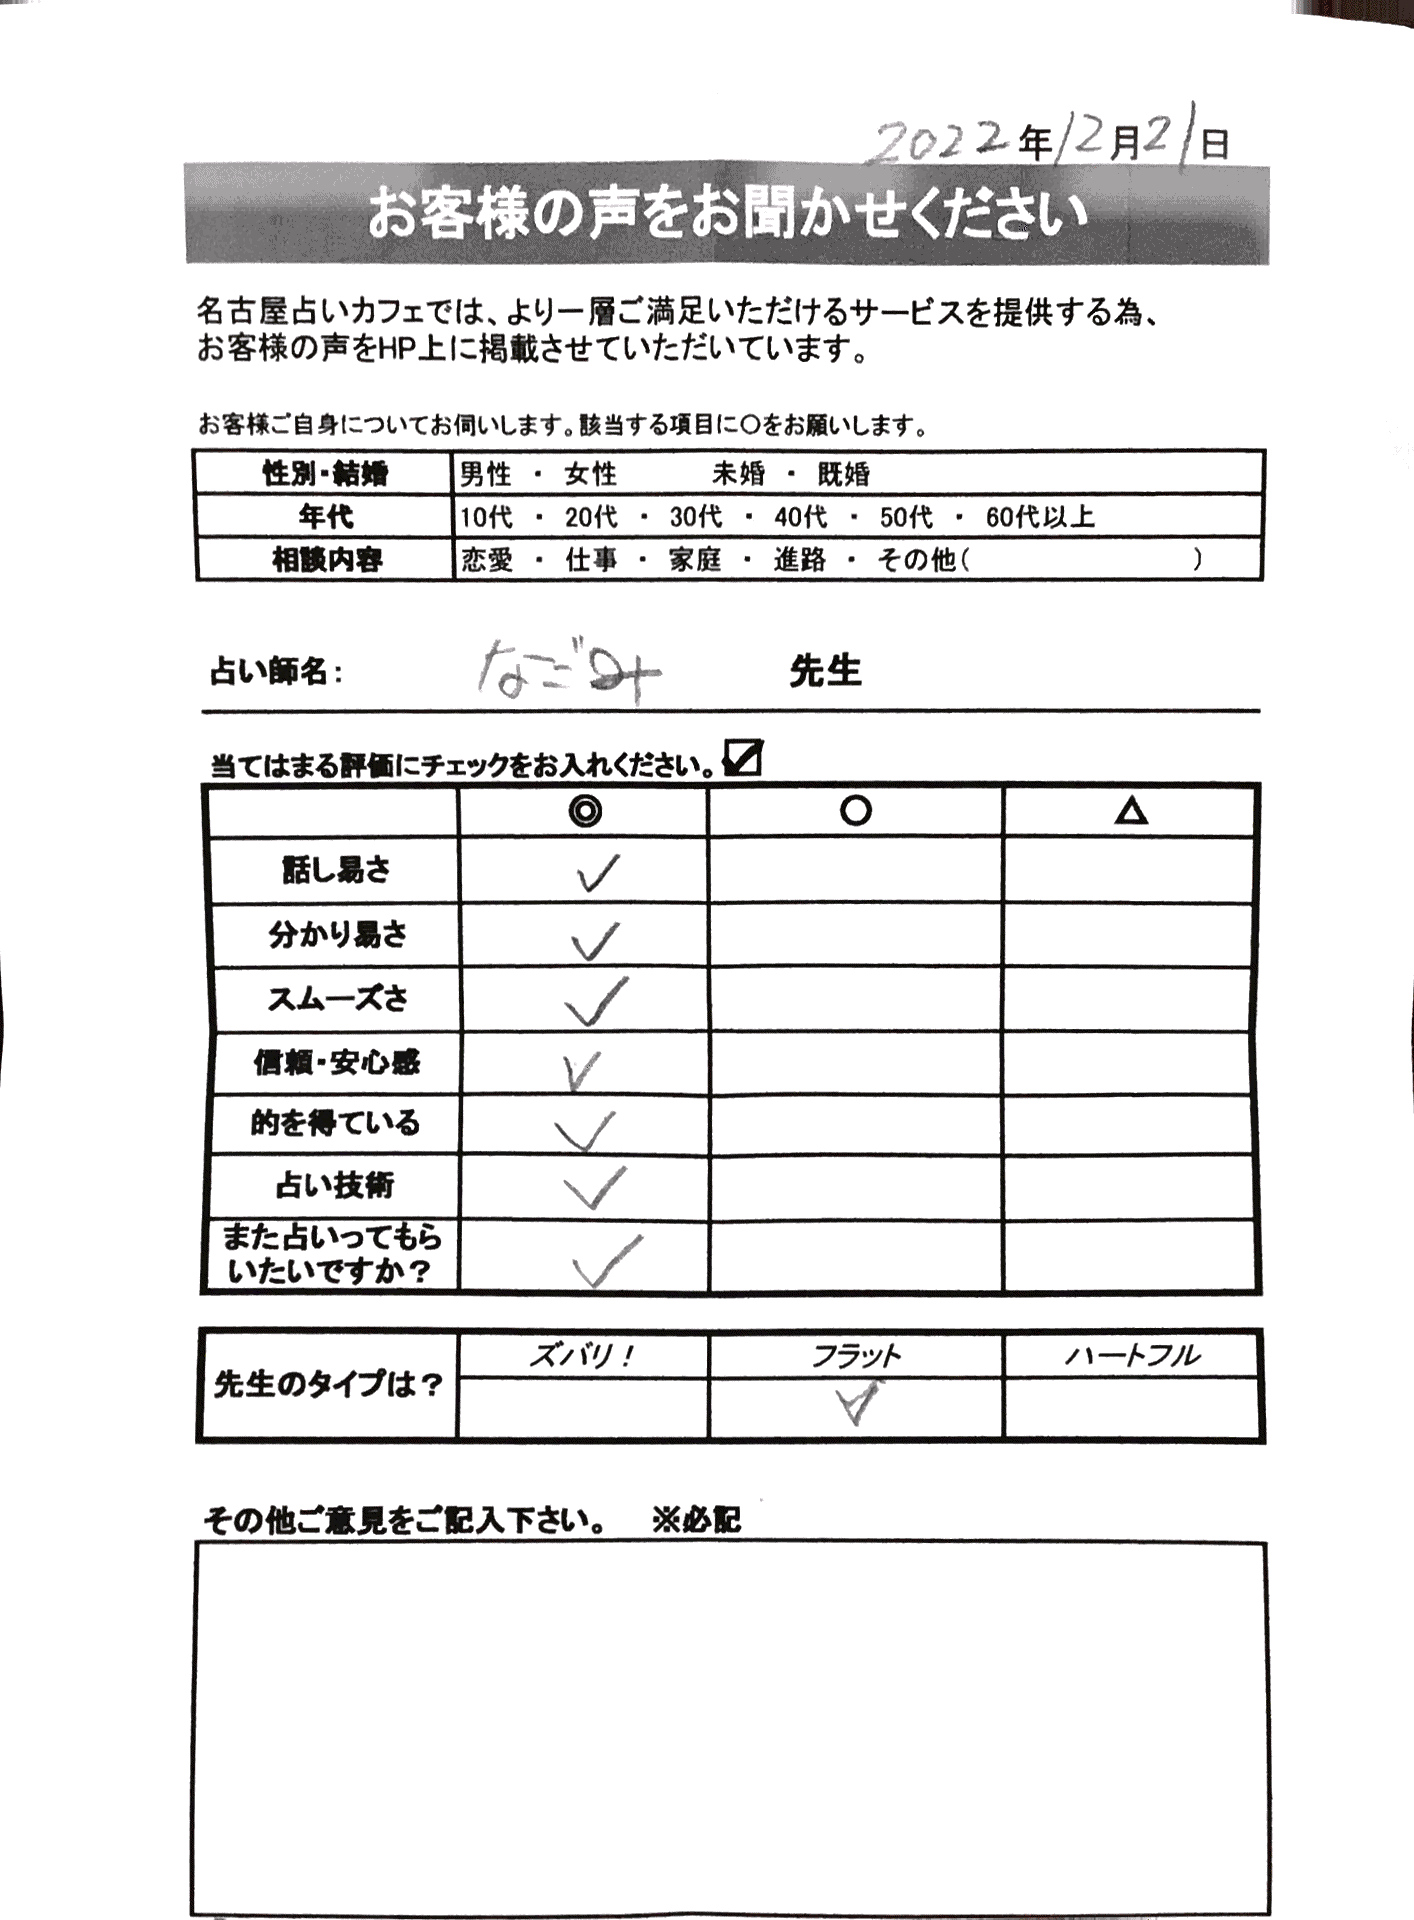 2022年12月21日
お客様の声をお聞かせください
名古屋占いカフェでは、より一層ご満足いただけるサービスを提供する為、
お客様の声をHP上に掲載させていただいています。
お客様ご自身についてお伺いします。該当する項目に○をお願いします。
性別・結婚 男性 ・ 女性 未婚 ・ 既婚
年代 10代 ・ 20代 ・ 30代 ・ 40代 ・ 50代 ・ 60代以上
相談内容 恋愛 ・ 仕事 ・ 家庭 ・ 進路 ・ その他( )
占い師名: なごみ 先生
当てはまる評価にチェックをお入れください。☑
◎ ○ △
話し易さ ✓
分かり易さ ✓
スムーズさ ✓
信頼・安心感 ✓
的を得ている ✓
占い技術 ✓
また占いってもら
いたいですか? ✓
ズバリ! フラット ハートフル
先生のタイプは? ✓
その他ご意見をご記入下さい。 ※必記